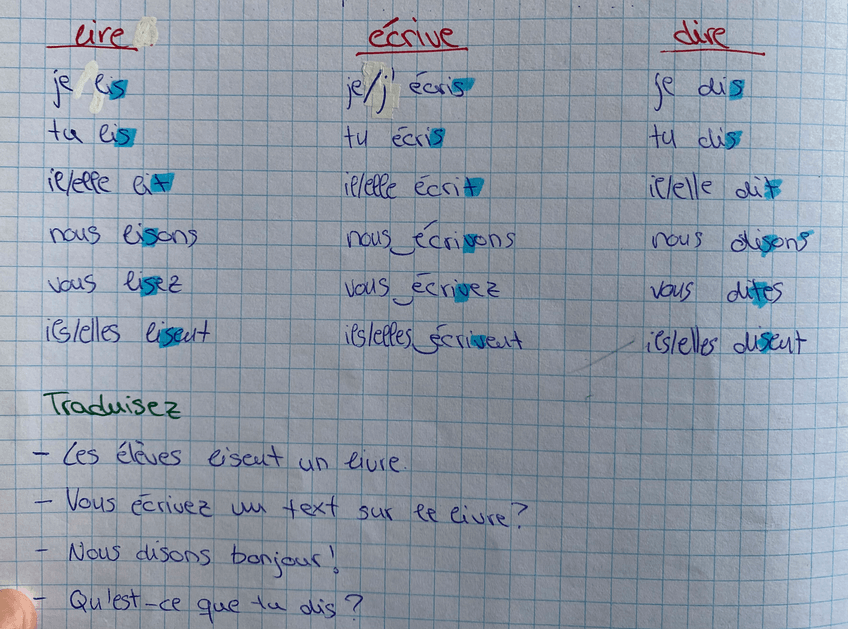 lire écrive dire
je lis je/j' écris je dis
tu lis tu écris tu dis
il/elle lit il/elle écrit il/elle dit
nous lisons nous écrivons nous disons
vous lisez vous écrivez vous dites
ils/elles lisent ils/elles écrivent ils/elles disent
Traduisez
- Les élèves lisent un livre.
- Vous écrivez un text sur le livre?
- Nous disons bonjour!
- Qu'est-ce que tu dis?